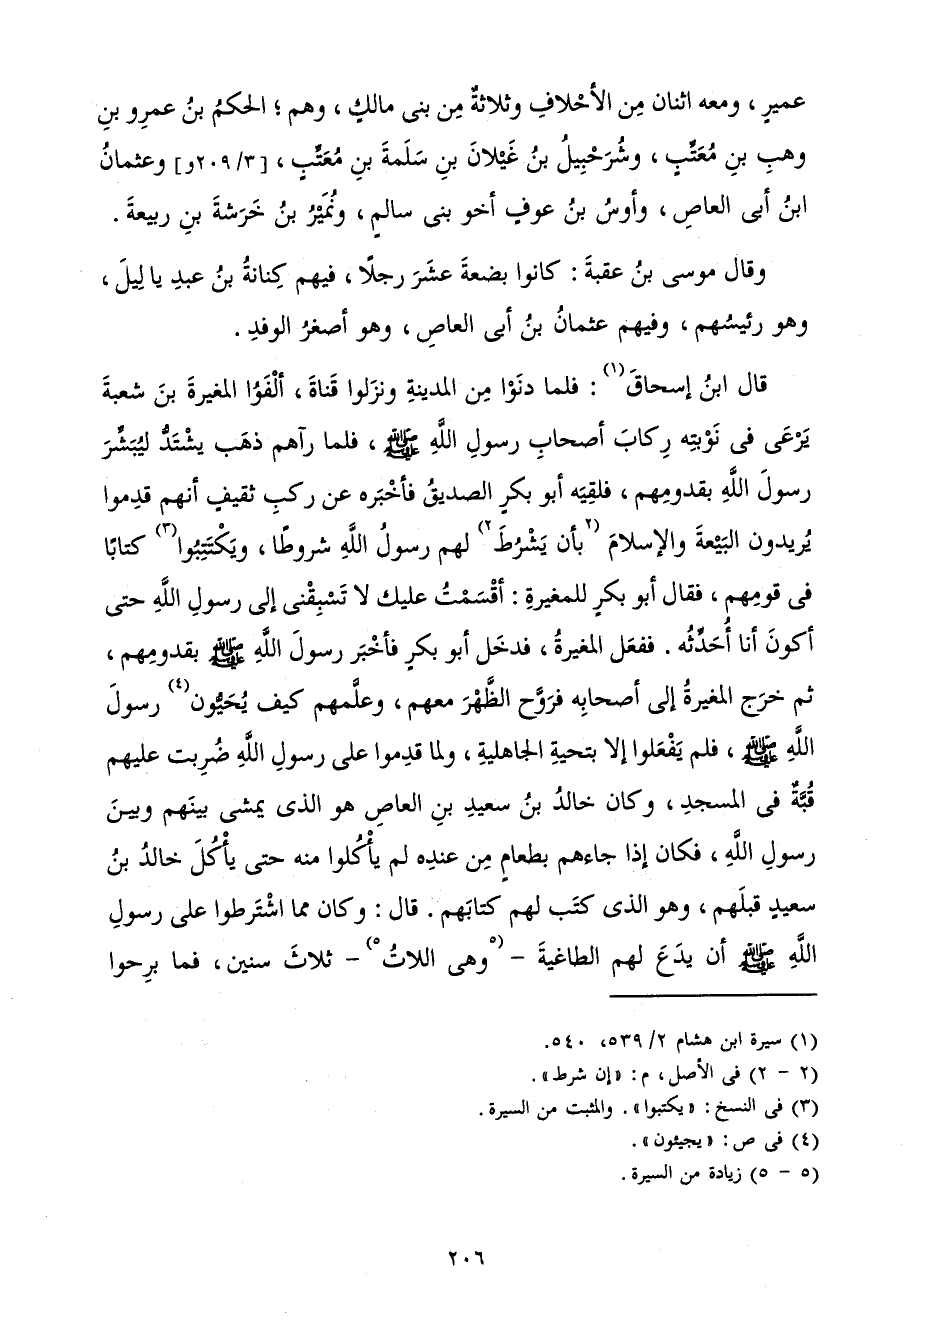 عميرٍ ، ومعه اثنان مِن الأحْلافِ وثلاثةٌ مِن بنى مالكٍ ، وهم ؛ الحكمُ بنُ عمرِو بنِ
وهبِ بنِ مُعَتِّبٍ ، وشُرَحْبِيلُ بنُ غَيْلانَ بنِ سَلَمةَ بنِ مُعَتِّبٍ ، [٢٠٩/٣و] وعثمانُ
ابنُ أبى العاصِ ، وأوسُ بنُ عوفٍ أخو بنى سالمٍ ، ونُمَيْرُ بنُ خَرَشةَ بنِ ربيعةَ .
وقال موسى بنُ عقبةَ : كانوا بضعةَ عشَرَ رجلًا ، فيهم كِنانةُ بنُ عبدِ يالِيلَ ،
وهو رئيسُهم ، وفيهم عثمانُ بنُ أبى العاصِ ، وهو أصغرُ الوفدِ .
قال ابنُ إسحاقَ(١) : فلما دنَوْا مِن المدينةِ ونزَلوا قَناةَ ، ألْفَوُا المغيرةَ بنَ شعبةَ
يَرْعَى فى نَوْبتِه رِكابَ أصحابِ رسولِ اللَّهِ ﷺ ، فلما رآهم ذهَب يشْتَدُّ ليُبَشِّرَ
رسولَ اللَّهِ بقدومِهم ، فلقِيَه أبو بكرٍ الصديقُ فأخْبَره عن ركبِ ثقيفٍ أنهم قدِموا
يُريدون البَيْعةَ والإسلامَ (٢بأن يَشْرُطَ٢) لهم رسولُ اللَّهِ شروطًا ، ويَكْتَتِبُوا(٣) كتابًا
فى قومِهم ، فقال أبو بكرٍ للمغيرةِ : أقْسَمْتُ عليك لا تَسبِقْنى إلى رسولِ اللَّهِ حتى
أكونَ أنا أُحَدِّثُه . ففعَل المغيرةُ ، فدخَل أبو بكرٍ فأخْبَر رسولَ اللَّهِ ﷺ بقدومِهم ،
ثم خرَج المغيرةُ إلى أصحابِه فرَوَّح الظَّهْرَ معهم ، وعلَّمهم كيف يُحَيُّون(٤) رسولَ
اللَّهِ ﷺ ، فلم يَفْعَلوا إلا بتحيةِ الجاهليةِ ، ولما قدِموا على رسولِ اللَّهِ ضُرِبت عليهم
قُبَّةٌ فى المسجدِ ، وكان خالدُ بنُ سعيدِ بنِ العاصِ هو الذى يمشى بينَهم وبينَ
رسولِ اللَّهِ ، فكان إذا جاءهم بطعامٍ مِن عندِه لم يأْكُلوا منه حتى يأْكُلَ خالدُ بنُ
سعيدٍ قبلَهم ، وهو الذى كتَب لهم كتابَهم . قال : وكان مما اشْتَرطوا على رسولِ
اللَّهِ ﷺ أن يدَعَ لهم الطاغيةَ - (٥وهى اللاتُ٥) - ثلاثَ سنين ، فما برِحوا
(١) سيرة ابن هشام ٢/ ٥٣٩، ٥٤٠.
(٢ - ٢) فى الأصل ، م : «إن شرط» .
(٣) فى النسخ : «يكتبوا» . والمثبت من السيرة .
(٤) فى ص : «يجيئون» .
(٥ - ٥) زيادة من السيرة .
٢٠٦